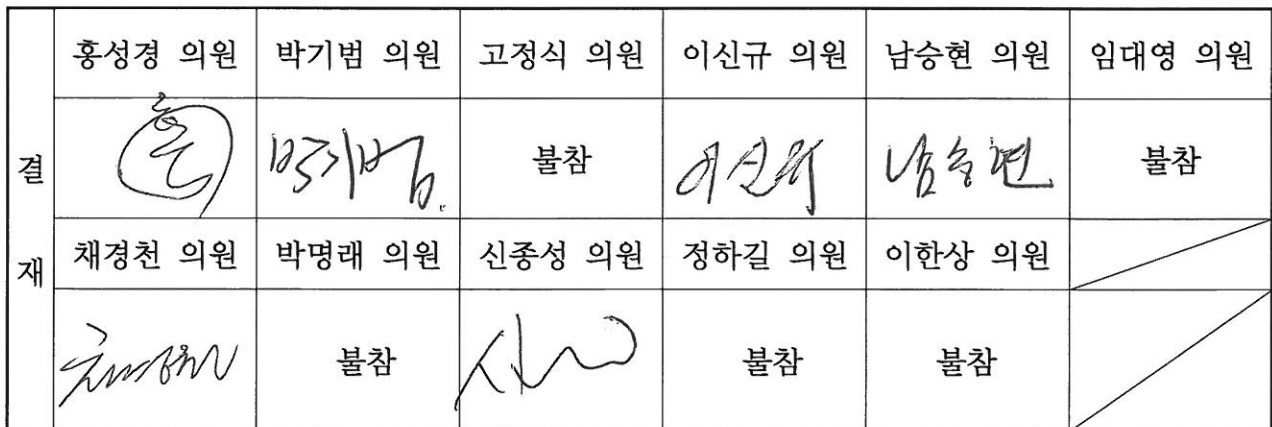 홍성경 의원 박기범 의원 고정식 의원 이신규 의원 남승현 의원 임대영 의원
결 박기범 불참 이신규 남승현 불참
재 채경천 의원 박명래 의원 신종성 의원 정하길 의원 이한상 의원
불참 불참 불참